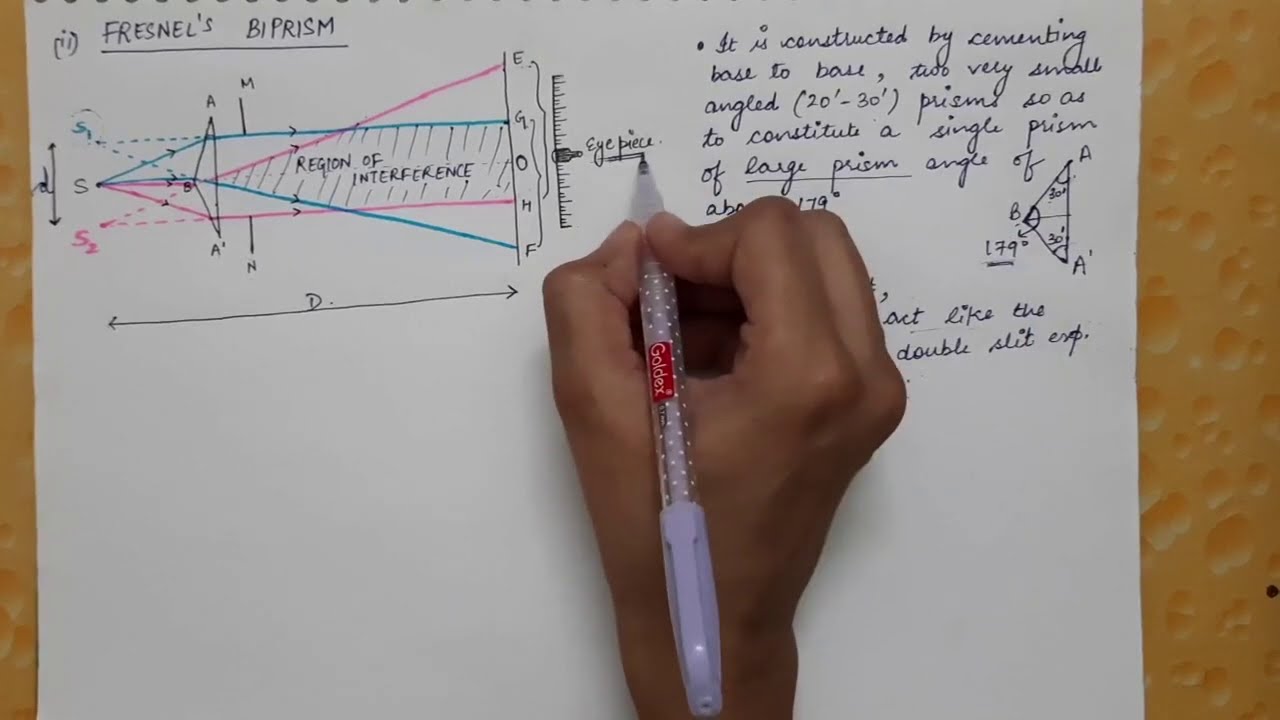 (ii) FRESNEL'S BIPRISM
E
M
A
S1
G
Eyepiece.
REGION OF
INTERFERENCE
O
d
S
B
H
S2
A'
N
F
D.
• It is constructed by cementing
base to base, two very small
angled (20'-30') prisms so as
to constitute a single prism
of large prism angle of
179°
A
30'
B
30'
179°
A'
act like the
double slit exp.
Goldex